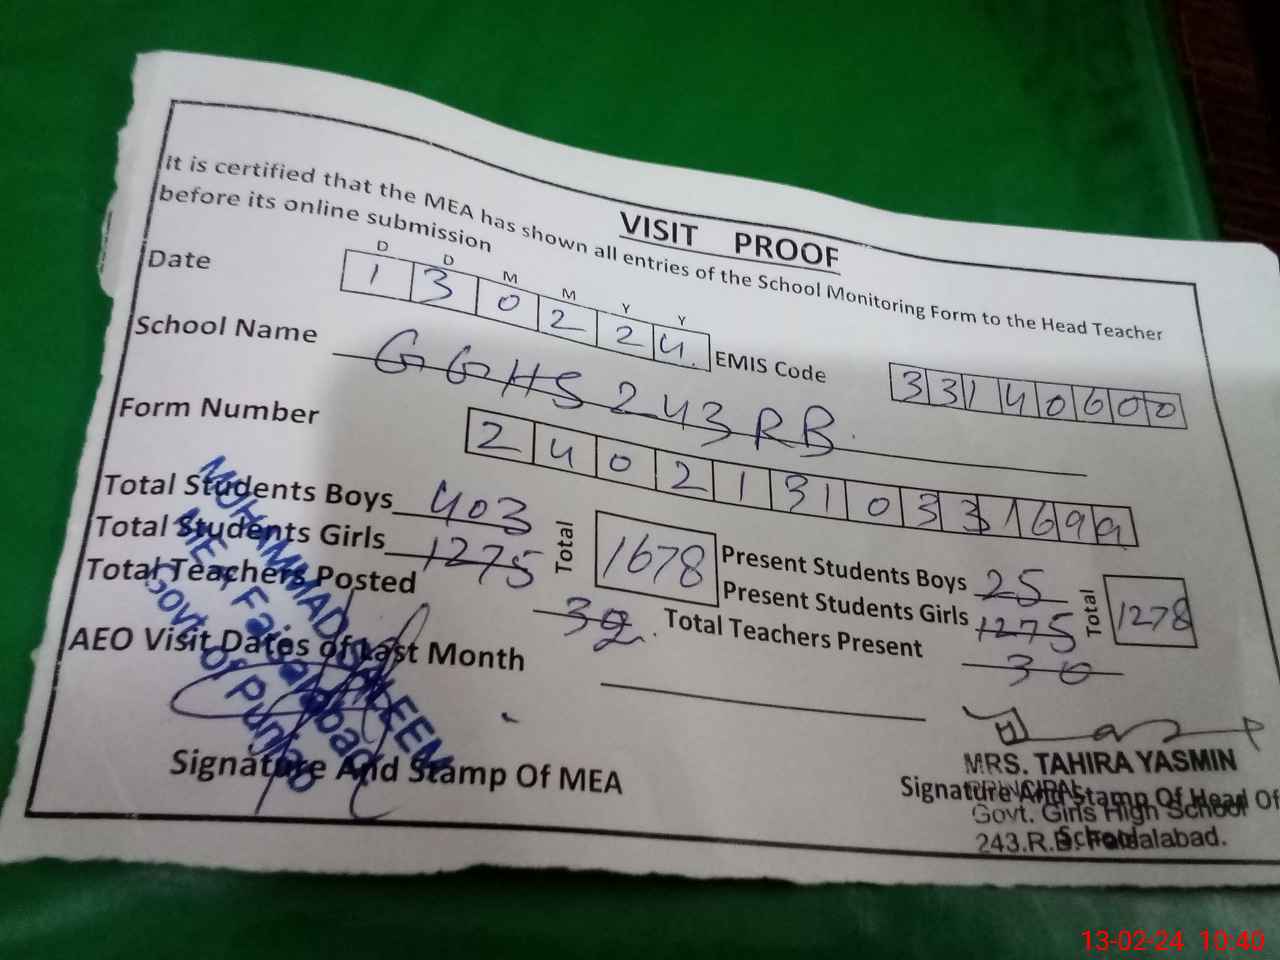 VISIT PROOF
It is certified that the MEA has shown all entries of the School Monitoring Form to the Head Teacher
before its online submission
D D M M Y Y
Date 1 3 0 2 2 4 EMIS Code 3 3 1 4 0 6 0 0
School Name GGHS 243 RB
Form Number 2 4 0 2 1 3 1 0 3 3 1 6 9 9
Total Students Boys 403 Total 1678 Present Students Boys 25 Total 1278
Total Students Girls 1275 Present Students Girls 1275
Total Teachers Posted 32 Total Teachers Present 30
AEO Visit Dates of Last Month
MUHAMMAD SALEEM
MEA Faisalabad
Govt. of Punjab
Signature And Stamp Of MEA
MRS. TAHIRA YASMIN
PRINCIPAL
Govt. Girls High School
243.R.B. Faisalabad.
Signature And Stamp Of Head Of
School
13-02-24 10:40